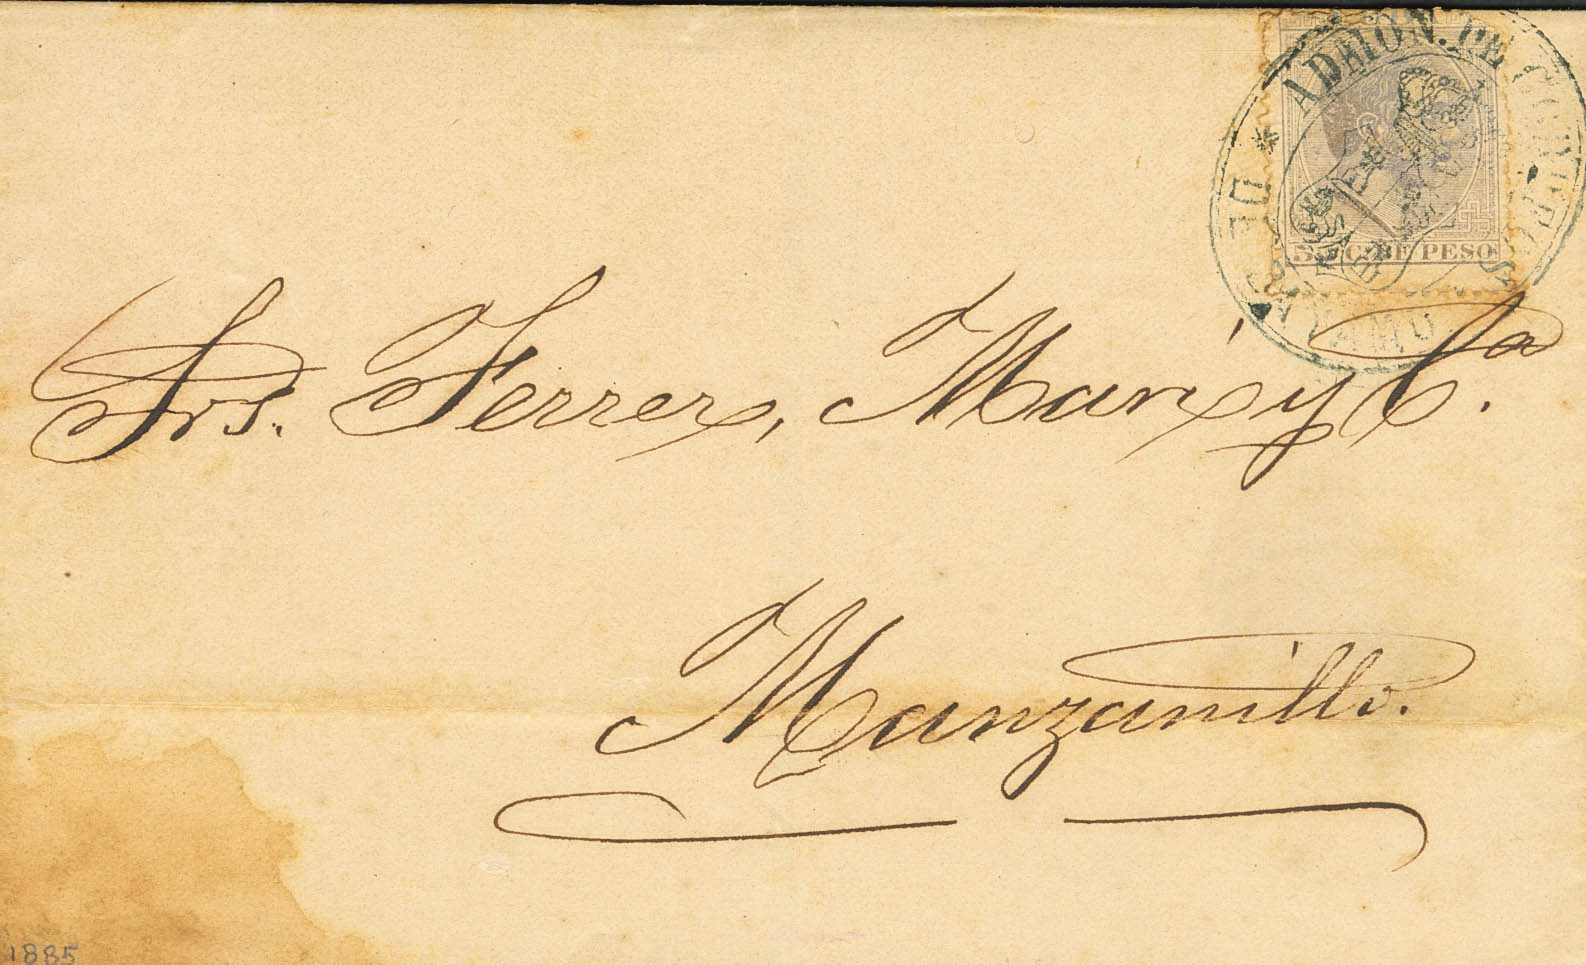 ADMON. DE CORREOS
5 C. DE PESO
Srs. Ferrer, Marx y Cª.
Manzanillo.
1885